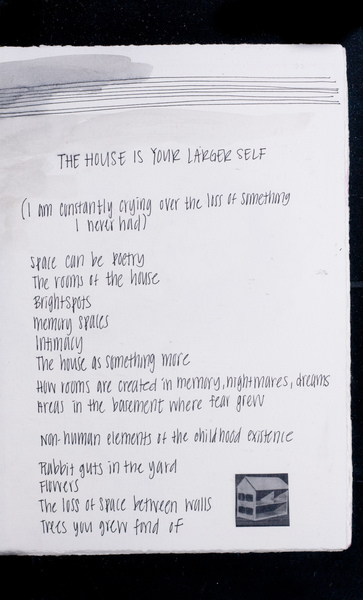 THE HOUSE IS YOUR LARGER SELF
(I am constantly crying over the loss of something
I never had)
Space can be poetry
The rooms of the house
Brightspots
memory spaces
Intimacy
The house as something more
How rooms are created in memory, nightmares, dreams
Areas in the basement where fear grew
Non-human elements of the childhood existence
Rabbit guts in the yard
Flowers
The loss of space between walls
Trees you grew fond of